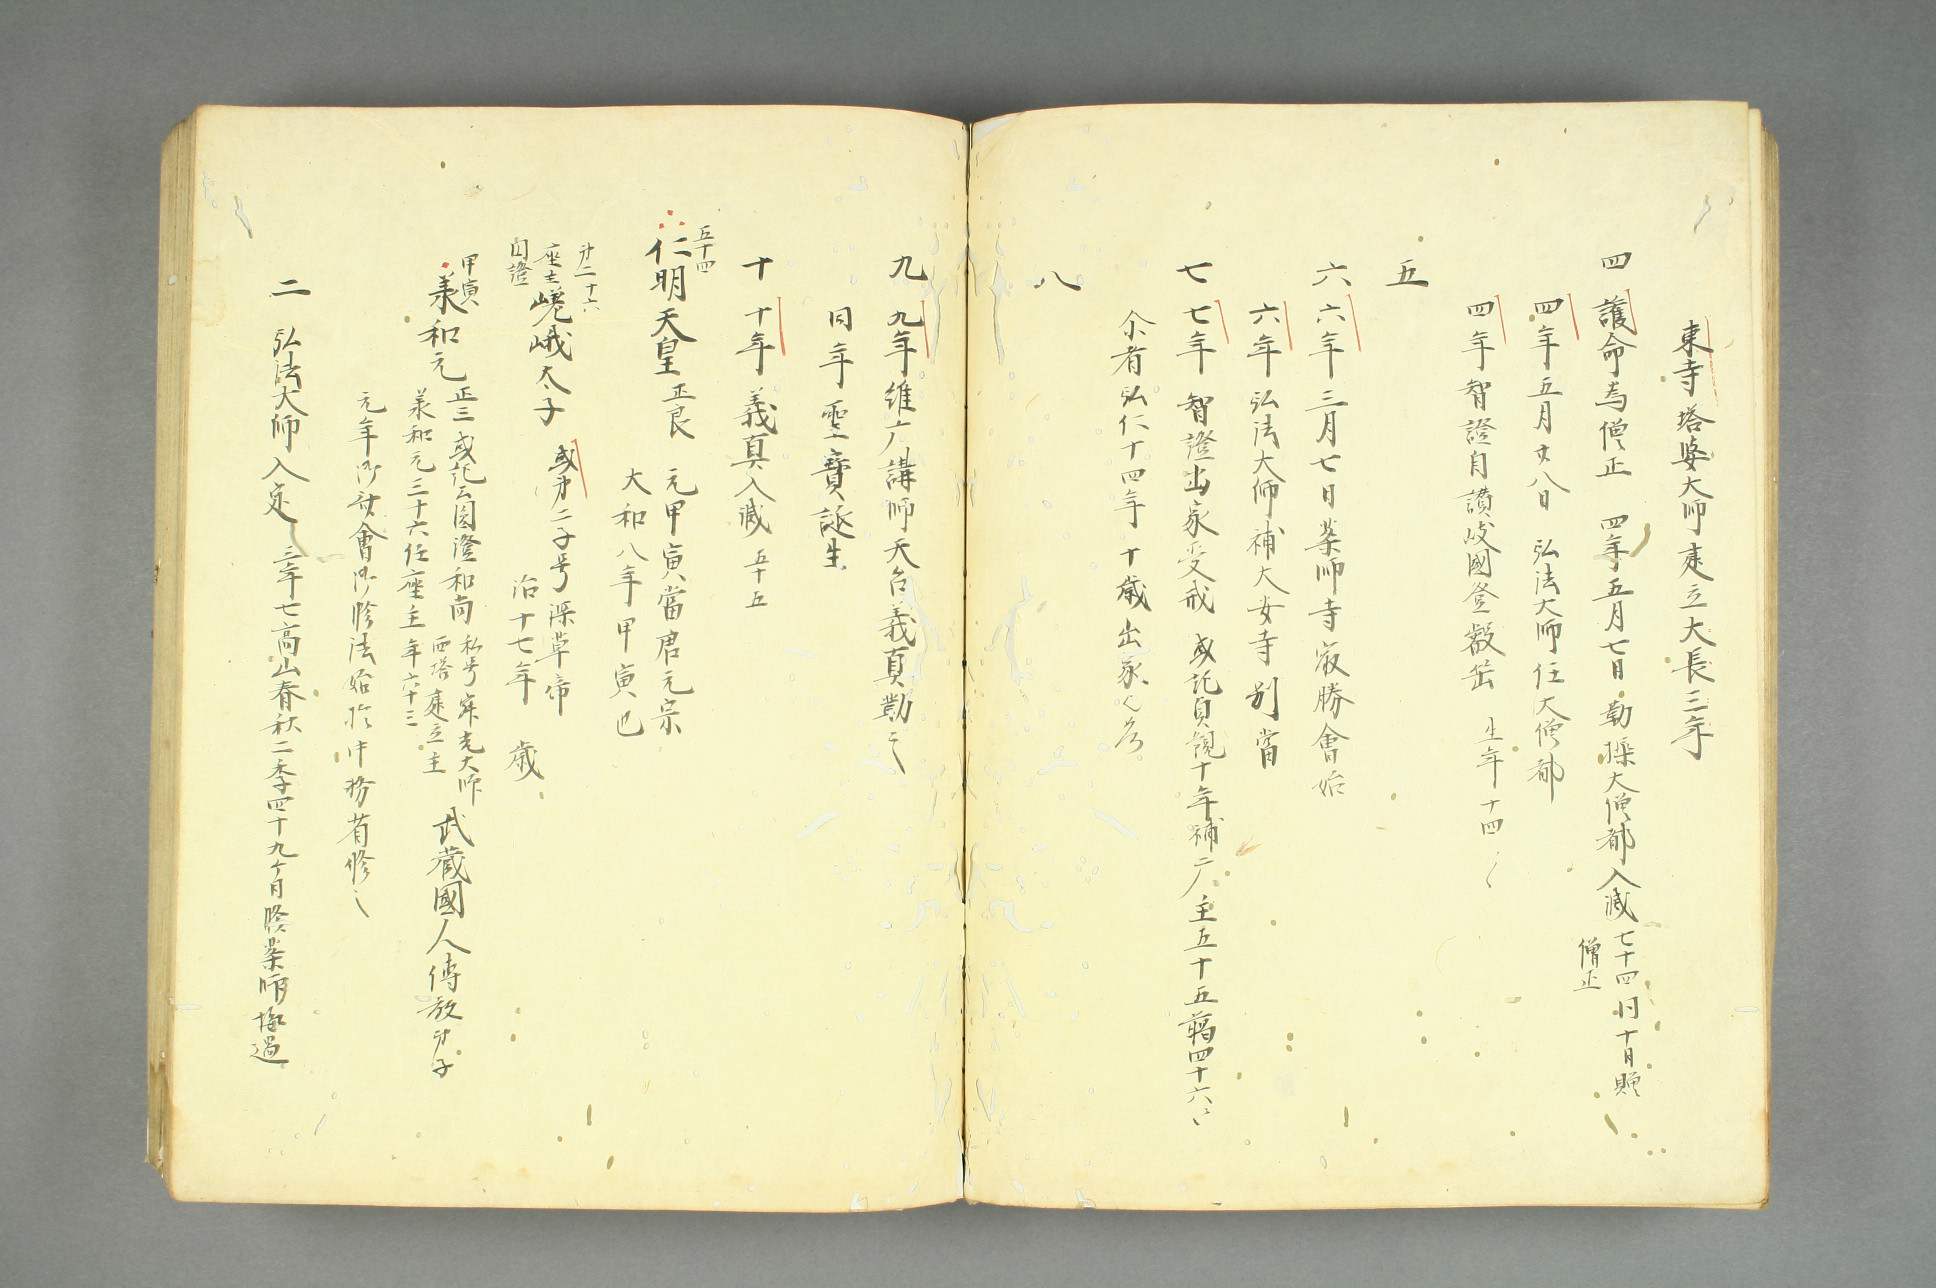 東寺塔婆大師建立大長三年
四 護命為僧正 四年五月七日 勤操大僧都入滅 七十四 同十月贈
僧正
四年五月廿八日 弘法大師任大僧都
四年智證自讃岐國登叡岳 生年十四
五
六 六年三月七日薬師寺㝡勝會始
六年弘法大師補大安寺別當
七 七年智證出家受戒 或記貞観十年補 主五十五﨟四十六
尓者弘仁十四年十歳出家
八
九 九年維广講師天台義真勤之
同年聖寳誕生
十 十年義真入滅 五十五
五十四
仁明天皇 正良 元甲寅當唐元宗
大和八年甲寅也
廿二 十六
座主嵯峨太子 或第二子号深草帝
治十七年 歳
圓澄
甲寅
羕和元 正三 或記云圓澄和尚 私号 寂光大師 武藏國人傳教弟子
羕和元三十六任座主 西塔建立主
年六十三
元年 會 修法始於中務省修之
二 弘法大師入定 三年七高山春秋二季四十九ヶ日修薬師悔過